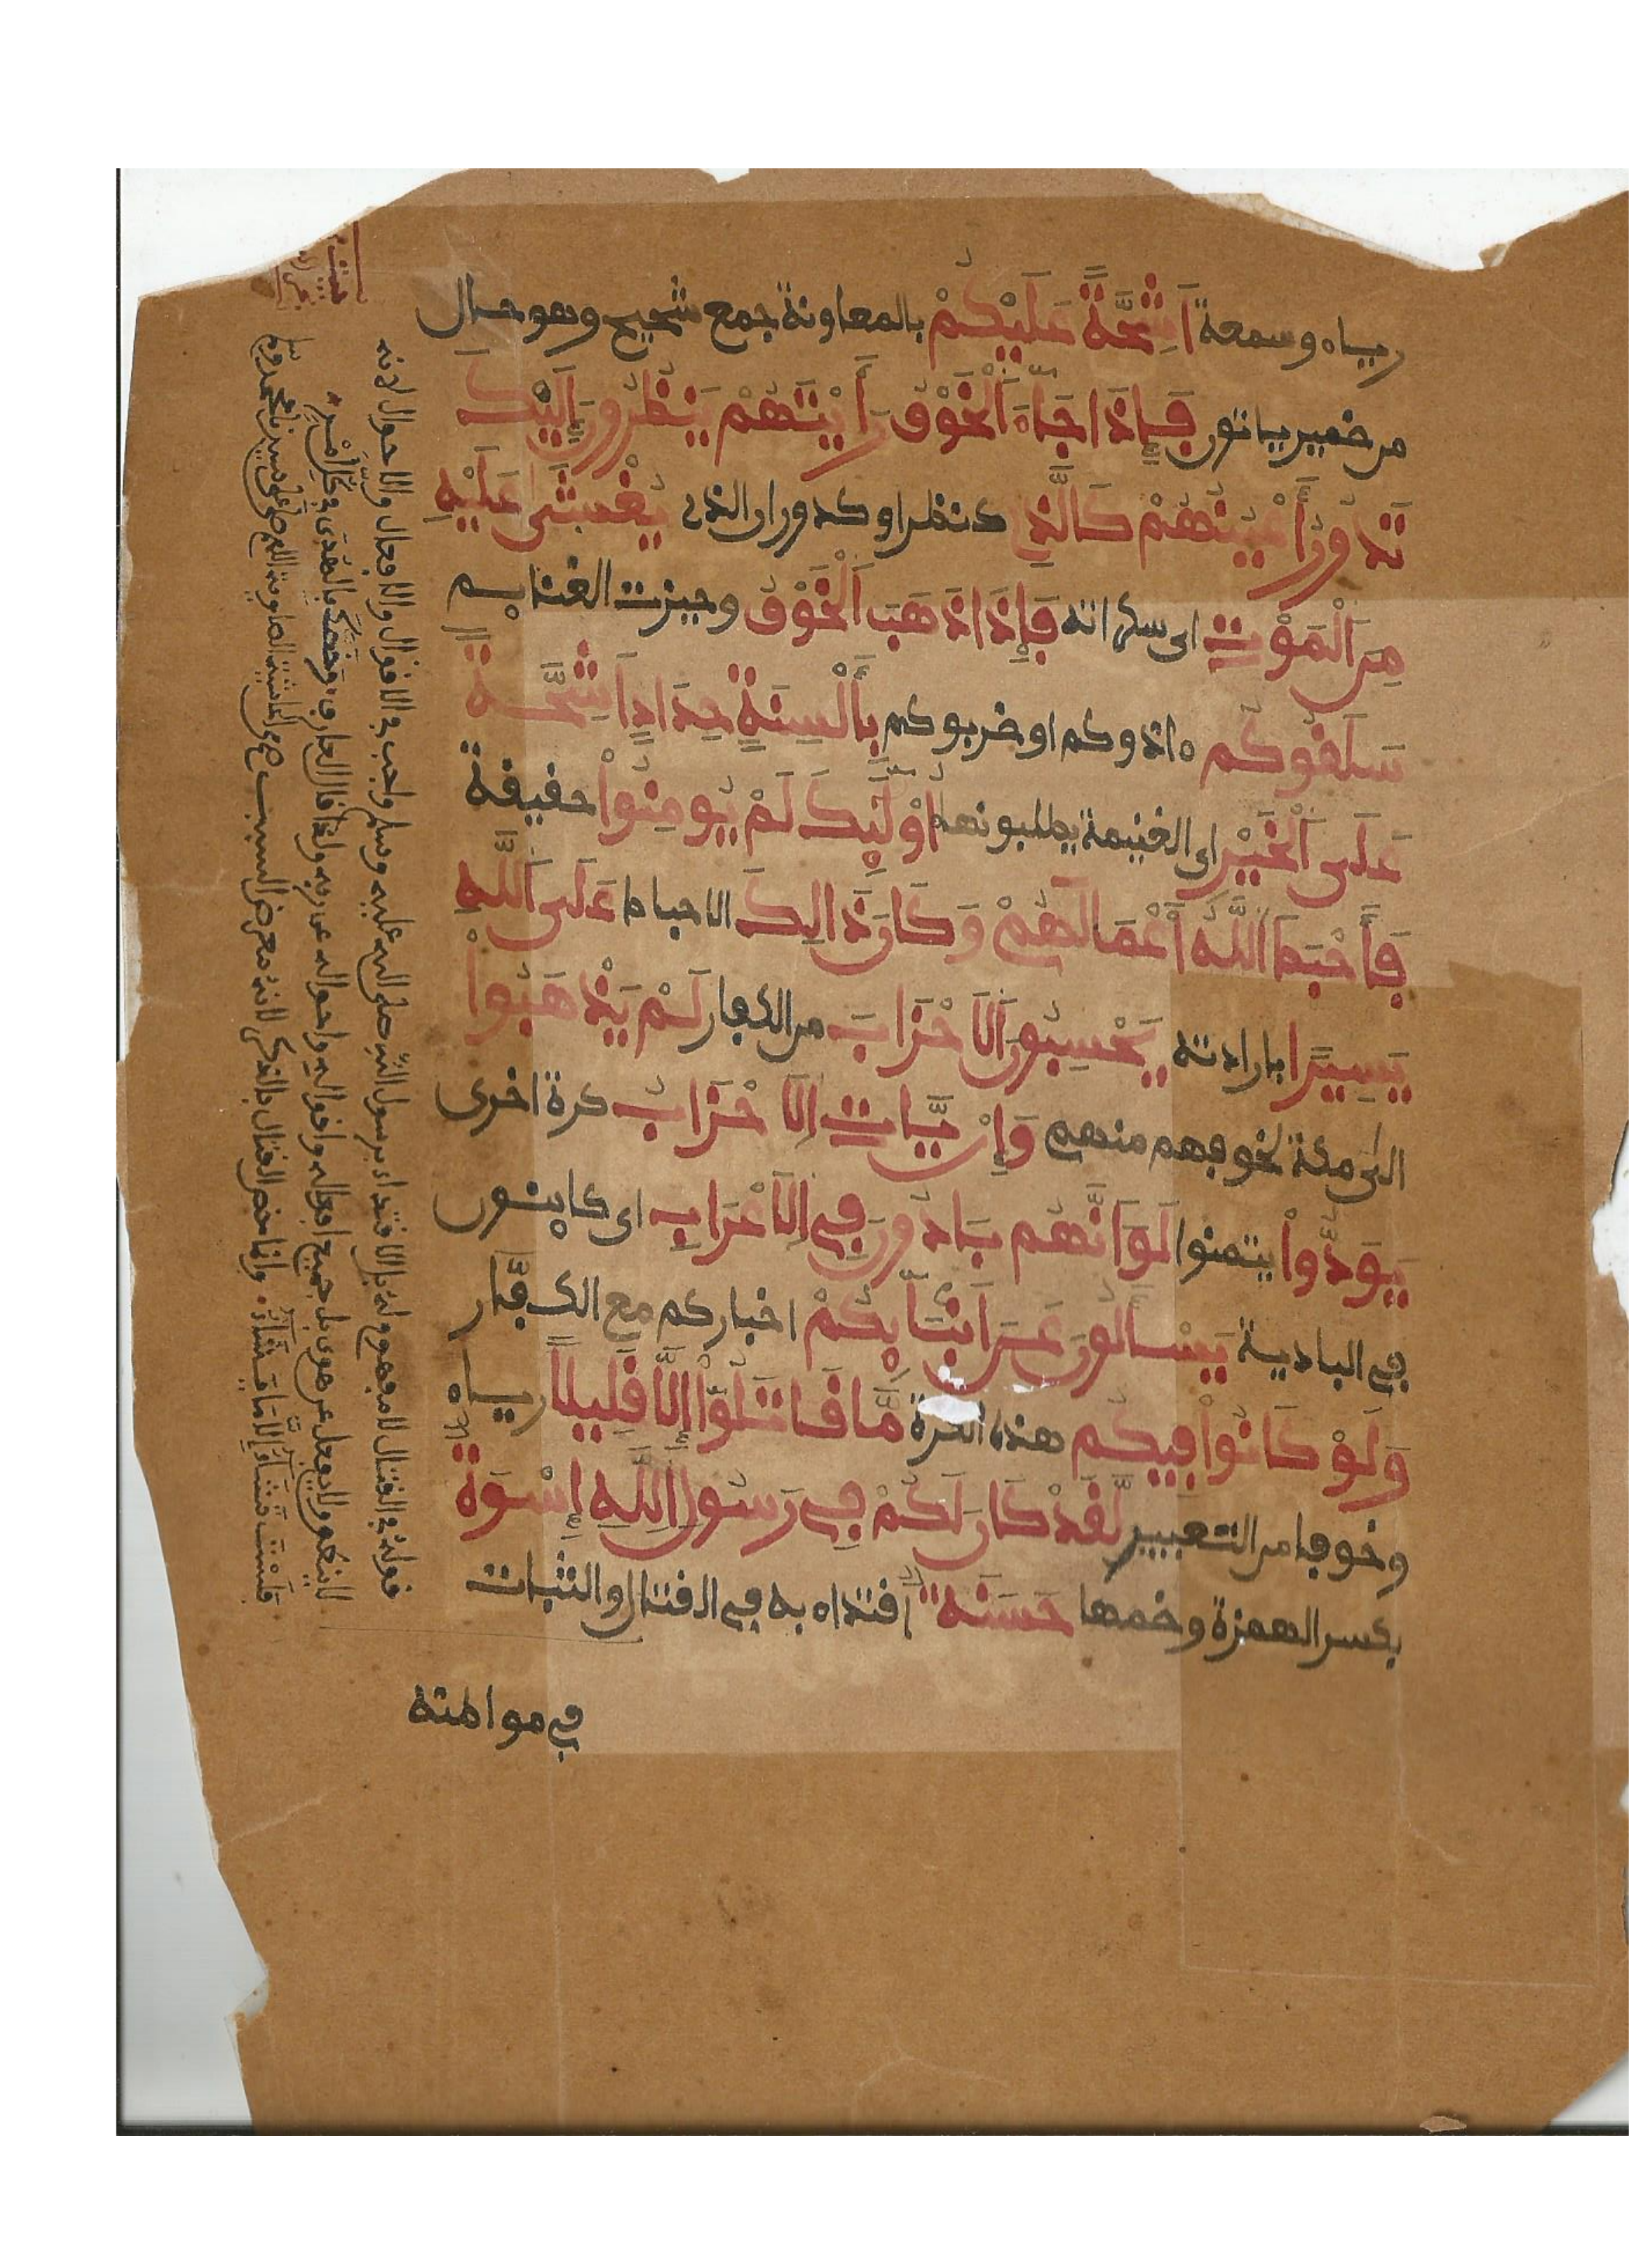 رياء وسمعة اَشِحَّةً عَلَيْكُمْ بالمعاونة جمع شحيح وهو حال
من ضمير ياتون فَإِذَا جَآءَ اَلْخَوْفُ رَأَيْتَهُمْ يَنظُرُونَ إِلَيْكَ
تَدُورُ أَعْيُنُهُمْ كَالَّذِے كنظر او كدوران الذى يُغْشَىٰ عَلَيْهِ
مِنَ اَلْمَوْتِ اى سكراته فَإِذَا ذَهَبَ اَلْخَوْفُ وحيزت الغنايم
سَلَقُوكُم ءاذوكم او ضربوكم بِأَلْسِنَةٍ حِدَادٍ اَشِحَّةً
عَلَى اَلْخَيْرِ اى الغنيمة يطلبونها أُوْلَٰئِكَ لَمْ يُومِنُواْ حقيقة
فَأَحْبَطَ اَللَّهُ أَعْمَالَهُمْ وَكَانَ ذَالِكَ الاحباط عَلَى اَللَّهِ
يَسِيرًا بارادته يَحْسِبُونَ اَلَاحْزَابَ من الكفار لَمْ يَذْهَبُواْ
الى مكة لخوفهم منهم وَإِنْ يَّاتِ اِلَاحْزَابُ كرة اخرى
يَوَدُّواْ يتمنوا لَوَ اَنَّهُم بَادُونَ فِے اِلَاعْرَابِ اى كاينون
فى البادية يَسْـَٔلُونَ عَنَ اَنۢبَآئِكُمْ اخباركم مع الكفار
وَلَوْ كَانُواْ فِيكُم هذه الكرة مَّا قَاتَلُوٓاْ إِلَّا قَلِيلًا رياء
وخوفا من التعيير لَّقَدْ كَانَ لَكُمْ فِے رَسُولِ اِللَّهِ إِسْوَةٌ
بكسر الهمزة وضمها حَسَنَةٌ اقتداء به فى القتال والثبات
فى مواطنه
قوله فى القتال لا مفهوم له بل الاقتداء برسول الله صلى الله عليه وسلم واجب فى الاقوال والافعال والاحوال لانه
لا ينطق ولا يفعل عن هوى بل جميع افعاله واقواله واحواله عن ربه ولذا قال العارف وخصك بالهدى فى كل امر
فلست تشاء الا ما يشاء وانما خص القتال بالذكر لانه معرض السبب